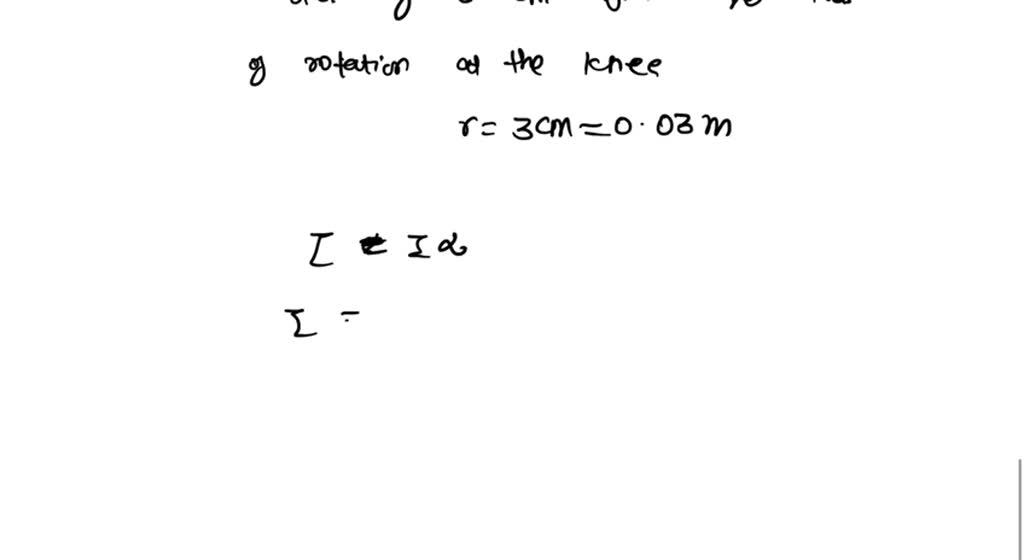 g rotation at the knee
r = 3cm = 0.03 m
τ = I α
I =